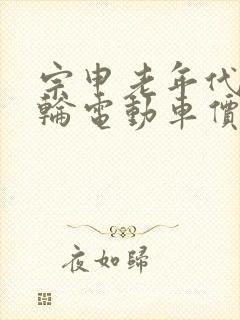 宗申老年代
輪電動車價
夜如歸